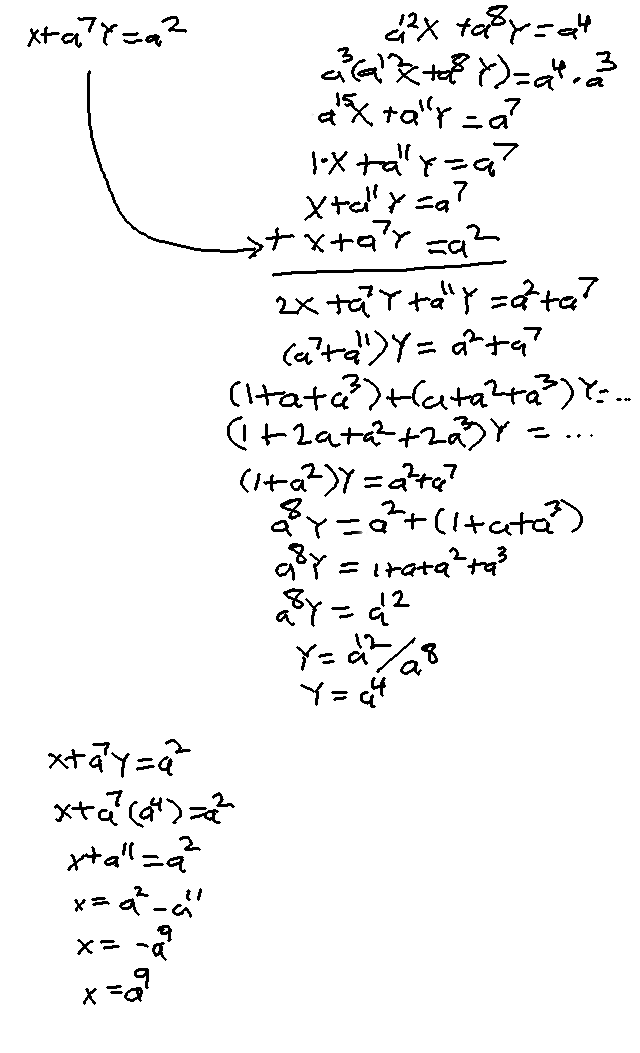 x+a⁷Y=a²
a¹²X +a⁸Y=a⁴
a³(a¹²X+a⁸Y)=a⁴·a³
a¹⁵X +a¹¹Y=a⁷
1·X +a¹¹Y=a⁷
X+a¹¹Y=a⁷
+ x+a⁷Y=a²
2X +a⁷Y+a¹¹Y=a²+a⁷
(a⁷+a¹¹)Y= a²+a⁷
(1+a+a³)+(a+a²+a³)Y=...
(1+2a+a²+2a³)Y = ...
(1+a²)Y=a²+a⁷
a⁸Y=a²+(1+a+a³)
a⁸Y= 1+a+a²+a³
a⁸Y= a¹²
Y= a¹²/a⁸
Y=a⁴
x+a⁷Y=a²
x+a⁷(a⁴)=a²
x+a¹¹=a²
x= a²-a¹¹
x= -a⁹
x=a⁹